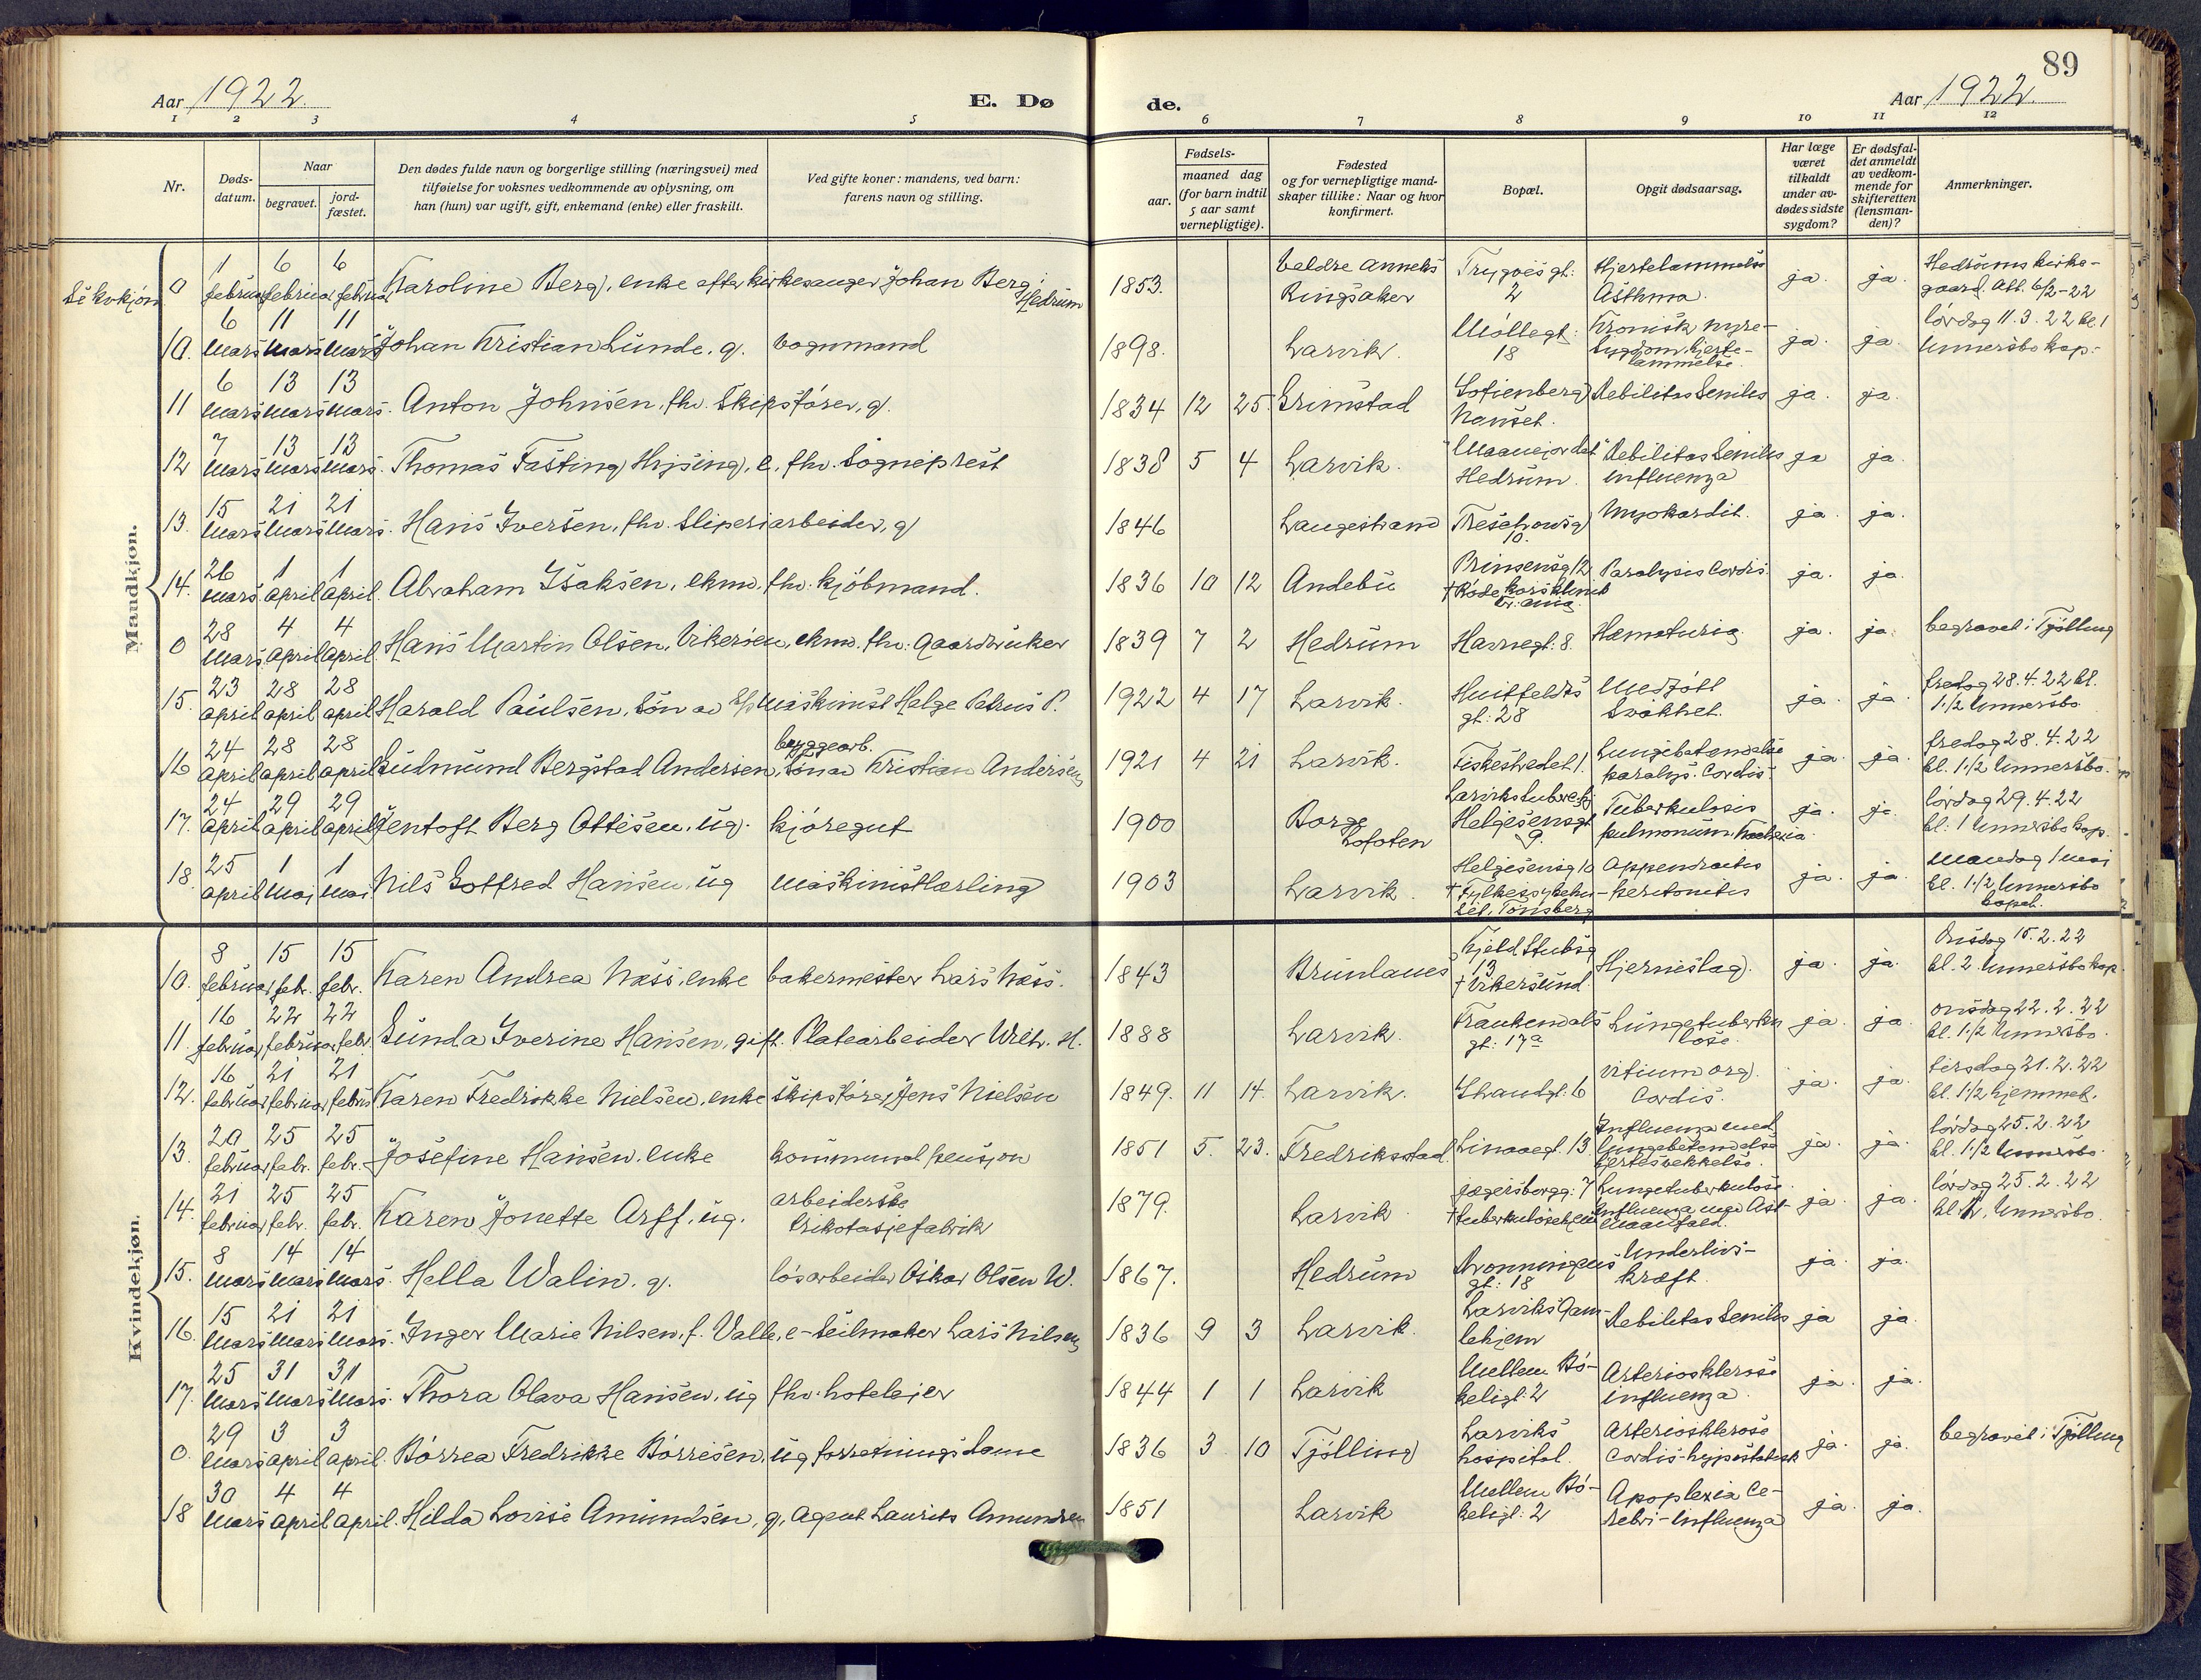 89
Aar 1922. E. Dø de. Aar 1922.
1 2 3 4 5 6 7 8 9 10 11 12
Nr.
Døds-
datum.
Naar
begravet.
jord-
fæstet.
Den dødes fulde navn og borgerlige stilling (næringsvei) med
tilføielse for voksnes vedkommende av oplysning, om
han (hun) var ugift, gift, enkemand (enke) eller fraskilt.
Ved gifte koner: mandens, ved barn:
farens navn og stilling.
Fødsels-
aar.
maaned dag
(for barn indtil
5 aar samt
vernepligtige).
Fødested
og for vernepligtige mand-
skaper tillike: Naar og hvor
konfirmert.
Bopæl.
Opgit dødsaarsag.
Har læge
været
tilkaldt
under av-
dødes sidste
sygdom?
Er dødsfal-
det anmeldt
av vedkom-
mende for
skifteretten
(lensman-
den)?
Anmerkninger.
Mandkjøn.
Se kvkjøn 0 1 februar 6 februar 6 februar Karoline Berg, enke efter kirkesanger Johan Berg, Hedrum 1853. Veldre anneks Ringsaker Trygves gt: 2 Hjertelammelse Asthma. ja. ja. Hedrums kirke-
gaard. Att. 6/2-22
10. 6 mars 11 mars 11 mars Johan Kristian Lunde, g. vognmand 1898. Larvik. Møllegt: 18 Kronisk nyre-
sygdom, hjerte-
lammelse. ja. ja. lørdag 11.3.22 kl 1
Unnersbo kap.
11 6 mars 13 mars 13 mars. Anton Johnsen, fhv. Skipsfører, g. 1834 12 25. Grimstad Sofienberg Nanset. Debilitas Senilis ja. ja.
12 7 mars 13 mars 13 mars. Thomas Fasting Hysing, e. fhv. Sogneprest 1838 5 4 Larvik. Hedrum. Debilitas Senilis influenza ja ja.
13. 15 mars 21 mars 21 mars. Hans Iversen, fhv. Sliperiarbeider, g 1846 Langestrand Treschousg 10. Myokardit. ja. ja.
14. 26 mars 1 april 1 april. Abraham Isaksen, ekm. fhv. kjøbmand. 1836 10 12 Andebu Prinsensg 12 † Røde kors klinik Kr.ania. Paralysis Cordis. ja. ja.
0 28 mars 4 april 4 april. Hans Martin Olsen, Vikerøen, ekm. fhv. gaardbruker 1839 7 2 Hedrum Havnegt. 8. Hæmaturia ja. ja. begravet i Tjølling
15. 23 april 28 april 28 april Harald Paulsen, Søn av Maskinist Helge Petrus P. 1922 4 17 Larvik. Huitfeldts gt: 28 Medfødt Svakhet. ja. ja. fredag 28.4.22 kl.
1 1/2 Unnersbo
16 24 april 28 april 28 april Gudmund Bergstad Andersen, Søn av bryggearb. Kristian Andersen 1921 4 21 Larvik. Fiskestredet 1. Lungebetendelse paralys. Cordis. ja. ja. fredag 28.4.22
kl. 1 1/2 Unnersbo.
17. 24 april 29 april 29 april Jentoft Berg Ottesen, ug. kjøregut 1900 Borge Lofoten Larviks tuberkhj Helgesensgt 9. Tuberkulosis pulmonum. Kachexia. ja. ja. lørdag 29.4.22
kl: 1 Unnersbo kap.
18. 25 april 1 mai 1 mai Nils Gotfred Hansen, ug maskinistlærling 1903 Larvik. Helgesensg 10 † Fylkessykehu-
set, Tønsberg Appendicitis - peritonitis ja. ja. mandag 1 mai
kl. 1 1/2 Unnersbo
kapel.
Kvindekjøn.
10. 8 februar 15 febr. 15 febr. Karen Andrea Næss, enke bakermester Lars Næss. 1843 Brunlanes Kjeld Stubsg 13 † Vikersund. Hjerneslag. ja. ja. Onsdag 15.2.22
kl. 2. Unnersbo kap.
11. 16 februar 22 februar 22 febr. Gunda Iverine Hansen, gift. Platearbeider Wilh. H. 1888 Larvik. Frankendals gt: 17a Lungetuberku
lose. ja. ja. onsdag 22.2.22
kl. 1 1/2 Unnersbo.
12. 16 februar 21 februar 21 febru Karen Fredrikke Nielsen, enke skipsfører Jens Nielsen 1849. 11 14. Larvik. Strandgt. 6 vitium org. Cordis. ja. ja. tirsdag 21.2.22
kl. 1 1/2 hjemmet.
13. 20 februar 25 febr. 25 febr. Josefine Hansen, enke kommunal pensjon 1851 5. 23. Fredriksstad. Linaaegt. 13 Influenza med lungebetendelse hjertesvekkelse. ja. ja. lørdag 25.2.22
kl. 1 1/2 Unnersbo.
14. 21 februar 25 febr. 25 febr. Karen Jonette Arff, ug. arbeiderske trikotasjefabrik 1879. Larvik. Jegersborgg. 7 † tuberkulosehjem Lungetuberkulose. Influenza ja. ja. lørdag 25.2.22
kl. Unnersbo.
15. 8 mars 14 mars 14 mars. Hella Walin. g. løsarbeider Oskar Olsen W. 1867. Hedrum Dronningens gt: 18 Underlivs-
kræft. ja. ja.
16. 15 mars 21 mars 21 mars. Inger Marie Nilsen, f. Valle, e- Seilmaker Lars Nilsen 1836 9 3 Larvik. Larviks Gam-
lehjem Debilitas Senilis ja ja.
17. 25 mars 31 mars 31 mars. Thora Olava Hansen, ug fhv. hoteleier 1844 1 1 Larvik Mellem Bø-
keligt: 2 Arteriosklerose influenza. ja. ja.
0. 29 mars 3 april 3 april. Børrea Fredrikke Børresen, ug forretningsdame 1836 3 10 Tjølling Larviks hospital. Arteriosklerose Cordis-hypostatisk ja. ja. begravet i Tjølling
18 30 mars 4 april 4 april. Hilda Lovise Amundsen, g, Agent Laurits Amundsen 1851 Larvik Mellem Bø-
keligt: 2 Apoplexia Ce-
rebri-Influenza ja. ja.